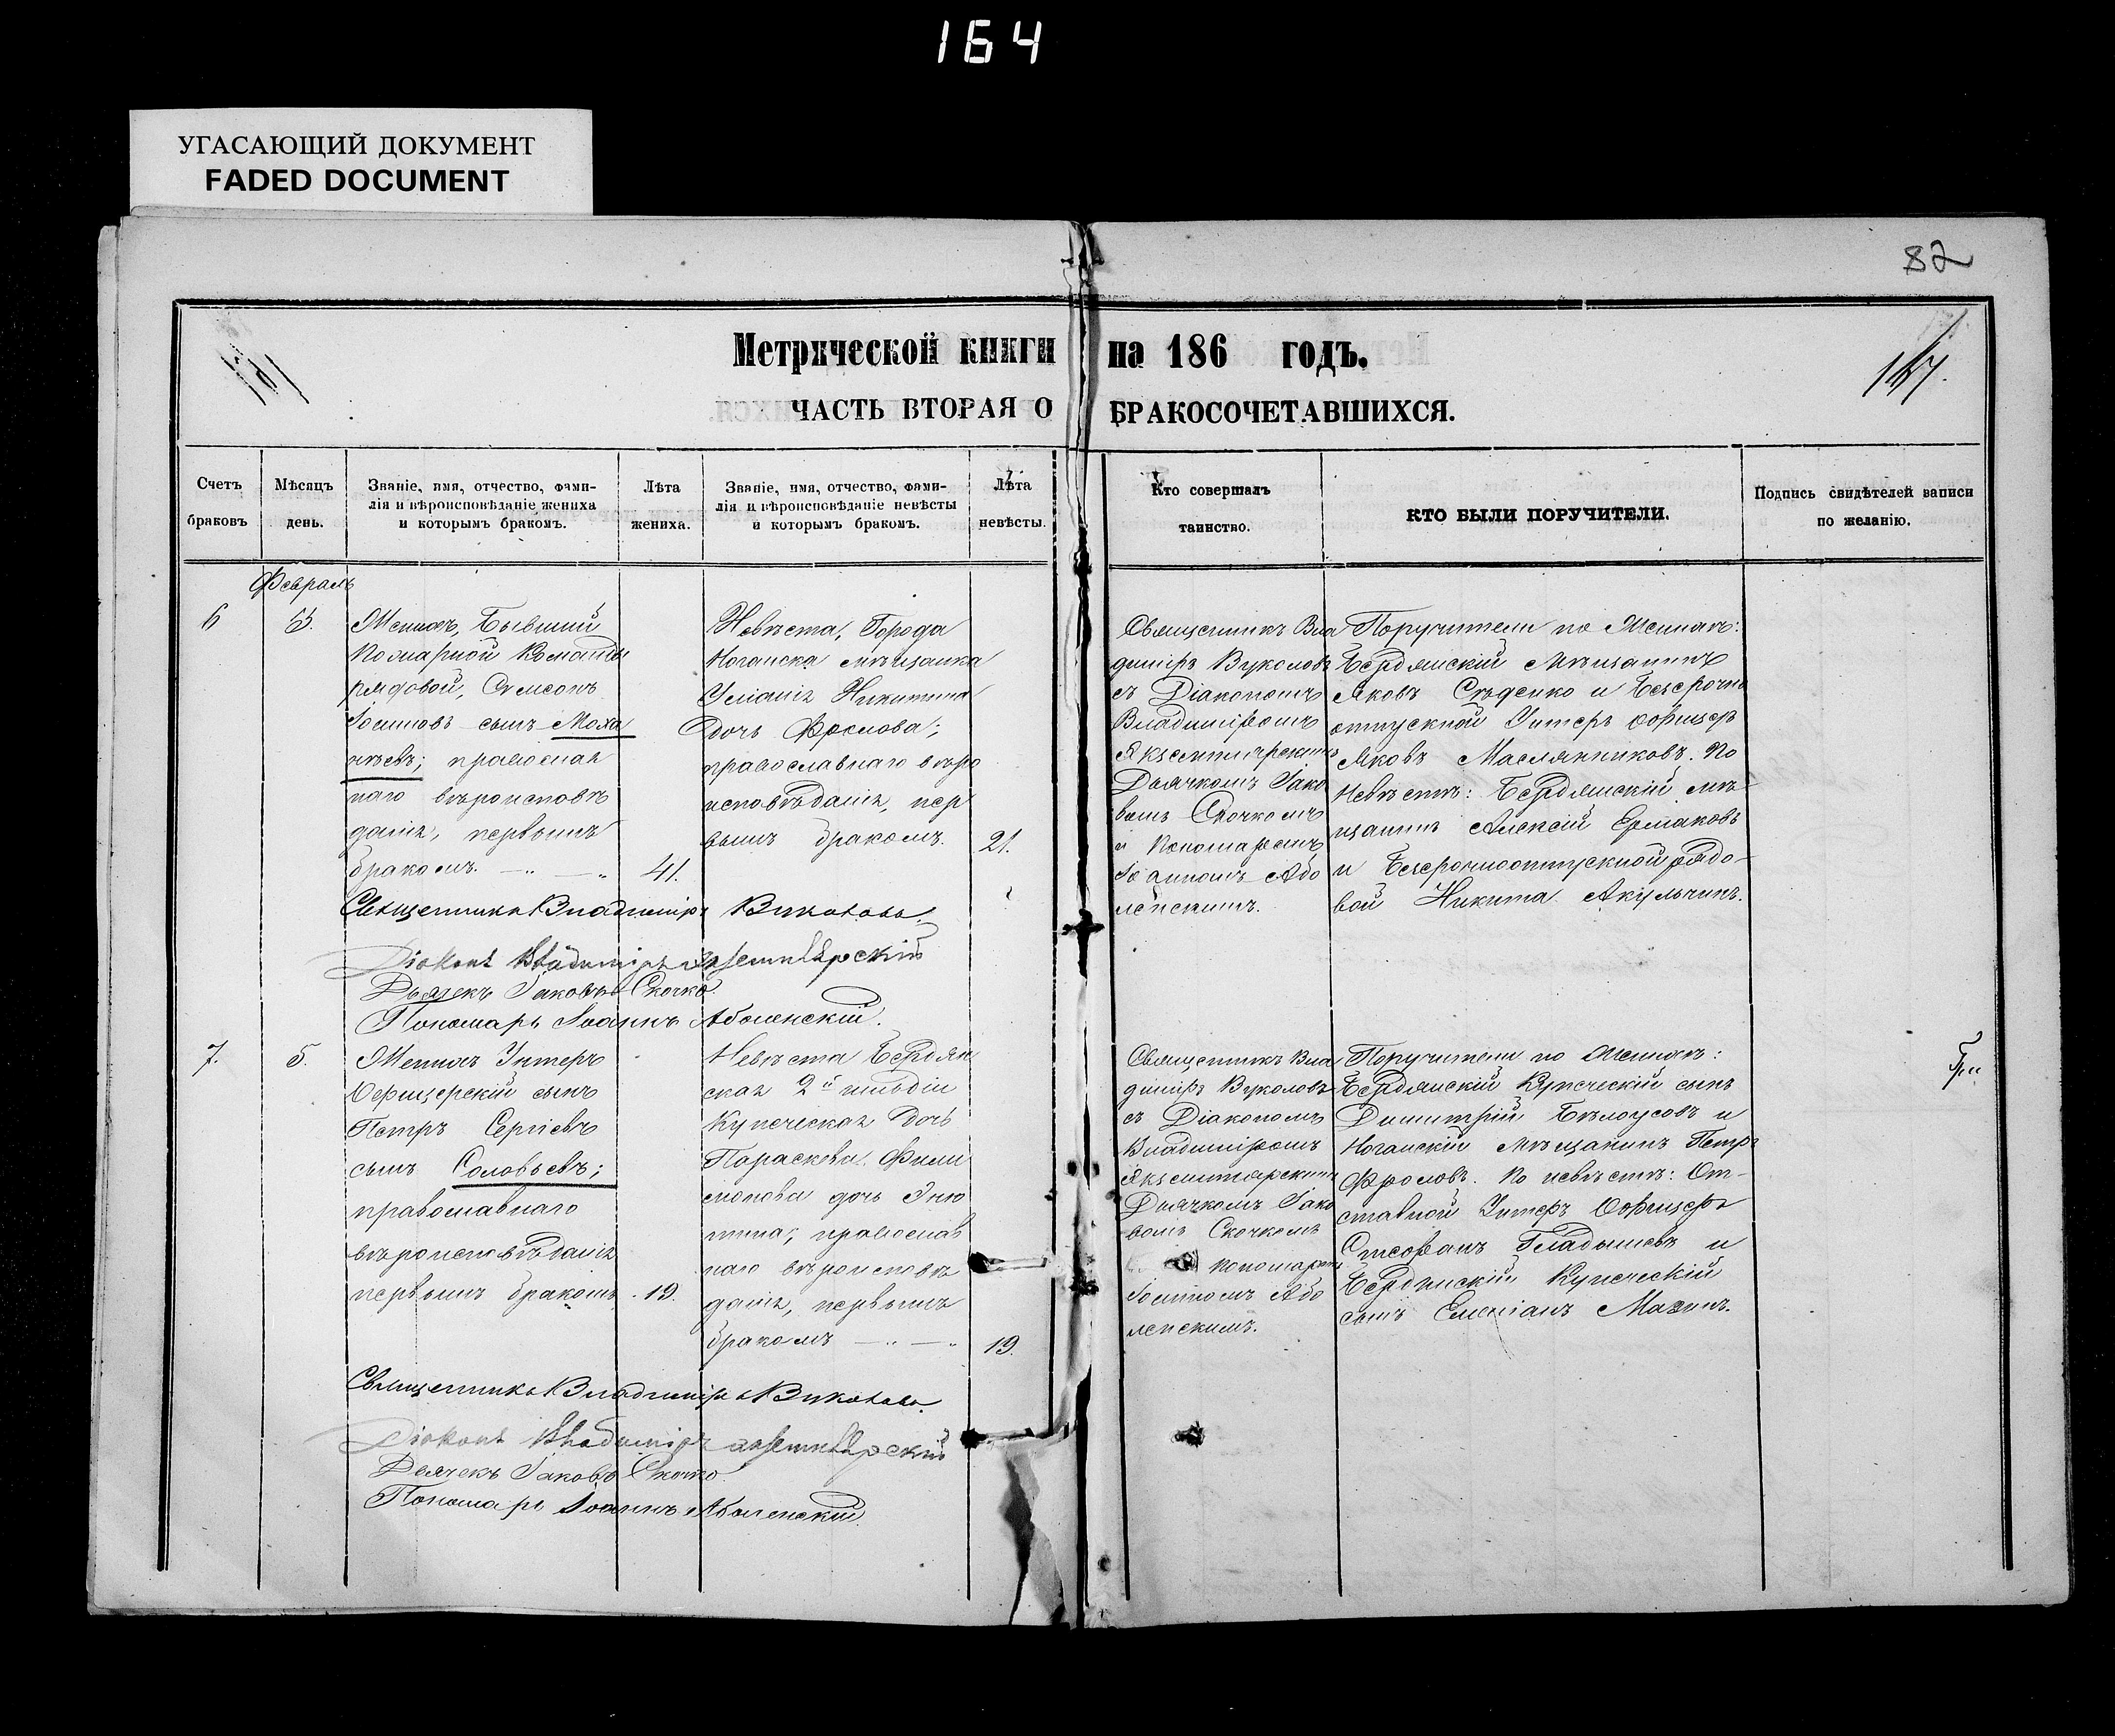 164
УГАСАЮЩИЙ ДОКУМЕНТ
FADED DOCUMENT
82
Метрической книги на 186 годъ.
ЧАСТЬ ВТОРАЯ О БРАКОСОЧЕТАВШИХСЯ.
Счетъ браковъ
Мѣсяцъ день.
Званіе, имя, отчество, фами-
лія и вѣроисповѣданіе жениха
и которымъ бракомъ.
Лѣта жениха.
Званіе, имя, отчество, фами-
лія и вѣроисповѣданіе невѣсты
и которымъ бракомъ.
Лѣта невѣсты.
Кто совершалъ
таинство.
КТО БЫЛИ ПОРУЧИТЕЛИ.
Подпись свидѣтелей записи
по желанію.
Февраль
6
Женихъ, Бывший
пожарной команды
рядовой, Симеонъ
сынъ Моха
нѣевъ; православ
наго вѣроисповѣ
данія, первымъ
бракомъ.
41.
Невѣста, Города
Ногайска мѣщанка
Іуліанія Никитина
дочь Фролова;
православнаго вѣро
исповѣданія, пер
вымъ бракомъ.
21.
Священникъ Вла
диміръ Вуколовъ
съ Діакономъ
Владиміромъ
Дьячкомъ Іако
вомъ Скочкомъ
и Пономаремъ
Іоанномъ Або
ленскимъ.
Поручители по Женихѣ:
Бердянскій Мѣщанинъ
Яковъ Сѣденко и Безсрочно
отпускной Унтеръ Офицеръ
Яковъ Маслянниковъ. По
Невѣстѣ: Бердянскій мѣ-
щанинъ Алексій Ермаковъ
и Безсрочноотпускной рядо-
вой Никита Акульчинъ.
Священникъ Владиміръ Вуколовъ
Діаконъ Владиміръ
Дьячекъ Іаковъ Скочко
Пономарь Іоаннъ Аболенскій.
7.
5.
Женихъ Унтеръ
Офицерскій сынъ
Петръ Сергіевъ
сынъ Соловьевъ;
православнаго
вѣроисповѣданія
первымъ бракомъ
19.
Невѣста Бердян
ская 2й гильдіи
Купеческая дочь
Параскева Фили
монова дочь
православ
наго вѣроисповѣ
данія, первымъ
бракомъ
19.
Священникъ Вла
диміръ Вуколовъ
съ Діакономъ
Владиміромъ
Дьячкомъ Іако
вомъ Скочкомъ
Пономаремъ
Іоанномъ Або
ленскимъ.
Поручители по Женихѣ:
Бердянскій Купеческій сынъ
Димитрій Бѣлоусовъ и
Ногайскій Мѣщанинъ Петръ
Фроловъ. По невѣстѣ: От-
ставной Унтеръ Офицеръ
Стефанъ Гладышевъ и
Бердянскій Купеческій
сынъ Емеліанъ Мазинъ.
Священникъ Владиміръ Вуколовъ
Діаконъ Владиміръ
Дьячекъ Іаковъ Скочко
Пономарь Іоаннъ Аболенскій